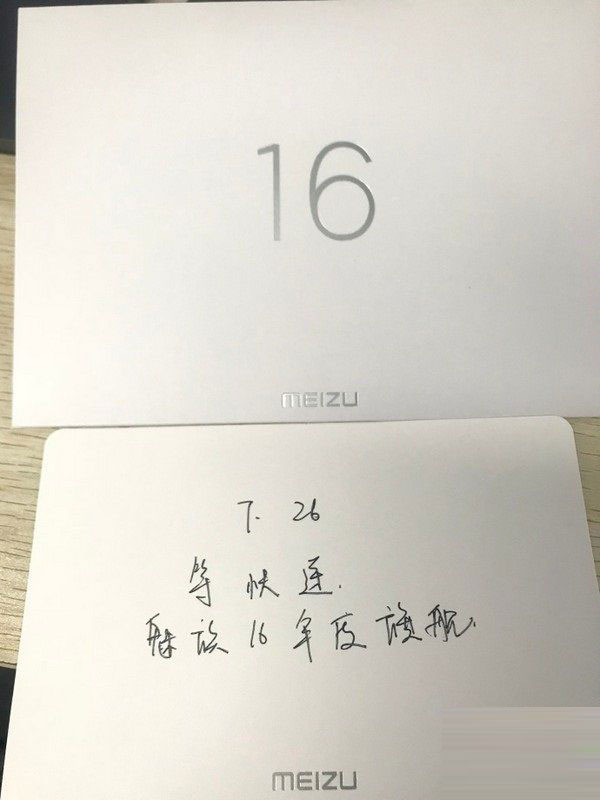 16
MEIZU
7. 26
等快递.
魅族16年度旗舰.
MEIZU